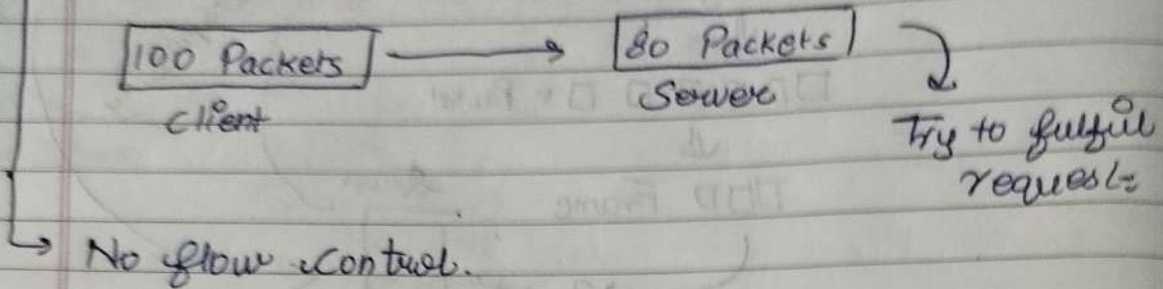 100 Packets
80 Packets
Client
Server
Try to fulfil
request
No flow control.